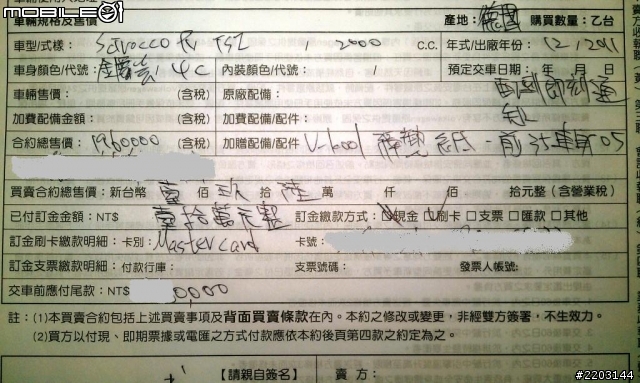 mobile01
車輛規格及售價 產地：德國 購買數量：乙台
車型/式樣：Scirocco R TSI / 2000 c.c. 年式/出廠年份：12/2011
車身顏色/代號： 4C 內裝顏色/代號： / 預定交車日期： 年 月 日
車輛售價： (含稅) 原廠配備： 即刻通
加費配備金額： (含稅) 加費配備/配件： 知
合約總售價：1960000 (含稅) 加贈配備/配件：V-kool 隔熱紙-前 車身05
買賣合約總售價：新台幣 壹 佰 玖 拾 陸 萬 仟 佰 拾元整 (含營業稅)
已付訂金金額：NT$ 壹拾萬元整 訂金繳款方式：□現金 □刷卡 □支票 □匯款 □其他
訂金刷卡繳款明細：卡別：Master card 卡號：
訂金支票繳款明細：付款行庫： 支票號碼： 發票人帳號：
交車前應付尾款：NT$ 0,000
註：(1)本買賣合約包括上述買賣事項及背面買賣條款在內。本約之修改或變更，非經雙方簽署，不生效力。
(2)買方以付現、即期票據或電匯之方式付款應依本約後頁第四款之約定為之。
【請親自簽名】 賣 方：
#2203144